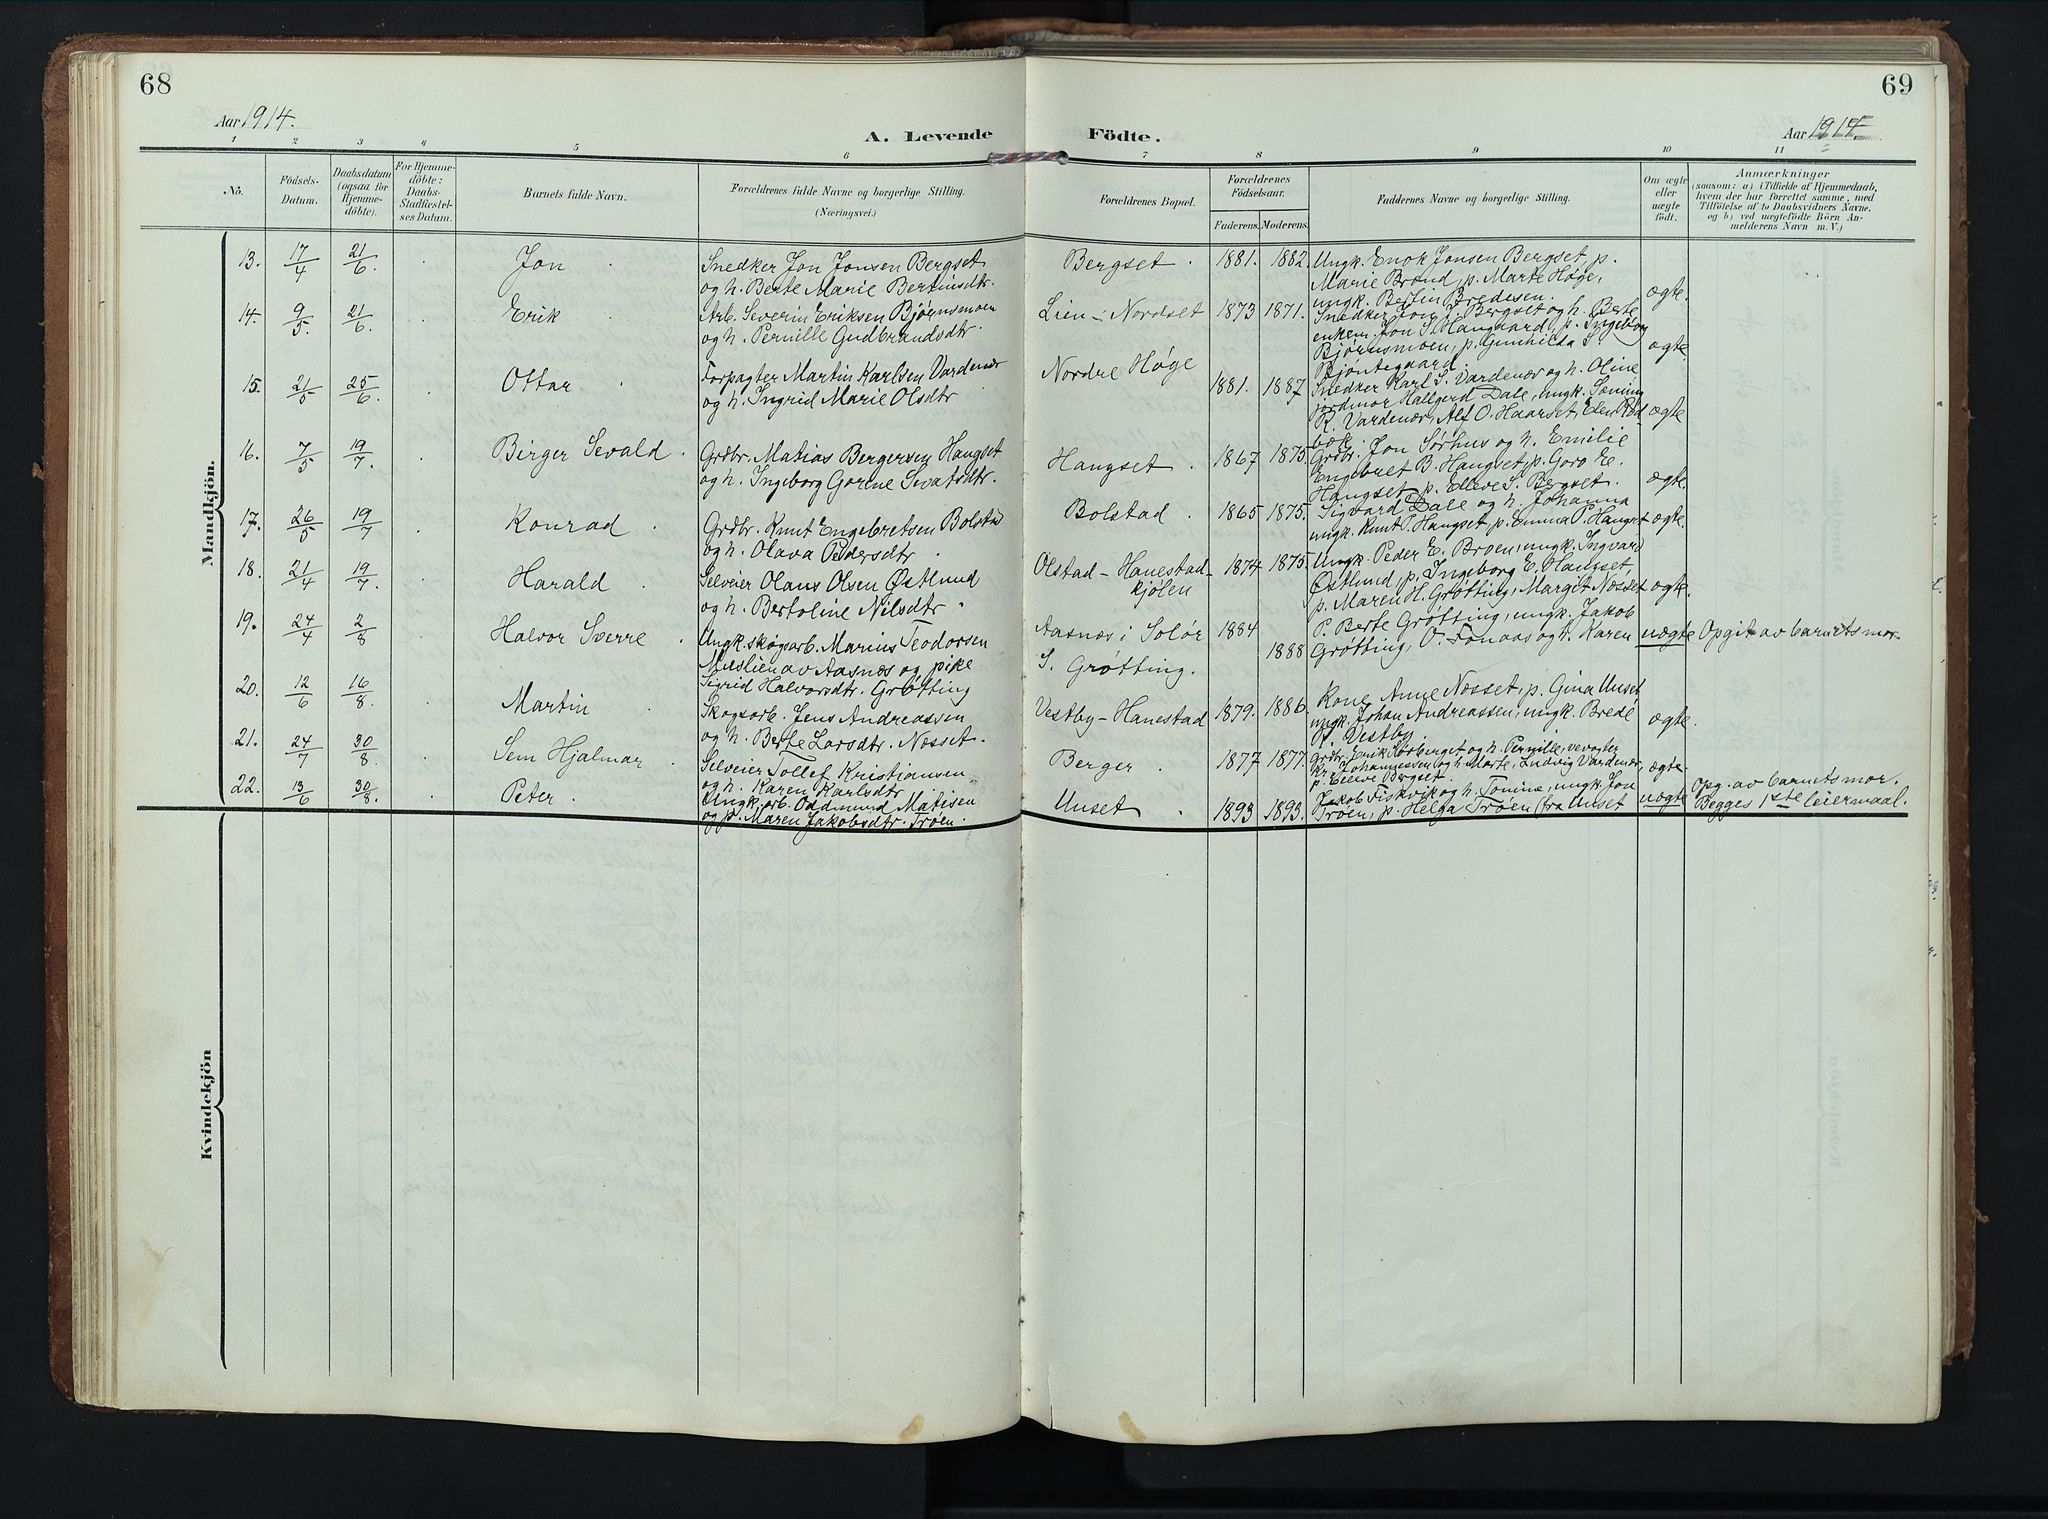 68
69
Aar 1914.
A. Levende Födte.
Aar 1914
1 2 3 4 5 6 7 8 9 10 11
No.
Födsels-
Datum.
Daabsdatum
(ogsaa for
Hjemme-
döbte).
For Hjemme-
döbte:
Daabs-
Stadfæstel-
ses Datum.
Barnets fulde Navn.
Forældrenes fulde Navne og borgerlige Stilling.
(Næringsvei.)
Forældrenes Bopæl.
Forældrenes
Födselsaar.
Faderens. Moderens.
Faddernes Navne og borgerlige Stilling.
Om ægte
eller
uægte
födt.
Anmærkninger
(saasom: a) i Tilfælde af Hjemmedaab,
hvem der har forrettet samme, med
Tilföielse af to Daabsvidners Navne.
og b) ved uægtefödte Börn An-
melderens Navn m. V.)
Mandkjön.
13. 17/4 21/6 Jon
Snedker Jon Jonsen Bergset
og h. Berte Marie Bertinsdtr.
Bergset. 1881. 1882.
Ungk. Enok Jonsen Bergset, p.
Marie Brænd, p. Marte Høge,
ungk. Bertin Bredesen.
ægte.
14. 9/5 21/6 Erik
Arb. Severin Eriksen Bjørnsmoen
og h. Pernille Gudbrandsdtr.
Lien - Nordset 1873 1871.
Snedker Jon J. Bergset og h. Berte
enkem. Jon S. Haugaard, p. Ingeborg
Bjørnsmoen, p. Gunhilda S.
Bjøntegaard
ægte
15. 21/5 25/6 Ottar
Forpagter Martin Karlsen Vardenær
og h. Ingrid Marie Olsdtr
Nordre Høge 1881. 1887
Snedker Karl S. Vardenær og h. Oline
jordmor Hallgerd Dale, ungk.
R. Vardenær, Alf O. Haarset, Eden Rød-
bæk.
ægte
16. 7/5 19/7. Birger Sevald
Grdbr. Matias Bergersen Hangset
og h. Ingeborg Gorine Sevatsdtr.
Hangset. 1867 1875
Grdbr. Jon Sørhus og h. Emilie
Engebret B. Hangset, p. Goro E.
Hangset p. Elleve S. Bergset.
ægte.
17. 26/5 19/7 Konrad
Grdbr. Knut Engebretsen Bolstad
og h. Olava Pedersdtr
Bolstad. 1865 1875.
Sigvard Dale og h. Johanna
ungk. Knut P. Hangset, p. Emma P. Hangset
ægte.
18. 21/4 19/7. Harald
Selveier Olaus Olsen Østlund
og h. Bertoline Nilsdtr.
Olstad - Hanestad-
kjølen
1874 1875.
Ungk. Peder E. Broen, ungk. Ingvard
Østlund, p. Ingeborg E. Hangset
p. Maren H. Grøtting, Margit Næsset
ægte.
19. 24/4 2/8 Halvor Sverre
Ungk. skogsarb. Marius Teodorsen
Muslien av Aasnæs og pike
Sigrid Halvorsdtr. Grøtting
Aasnæs i Solør
S. Grøtting.
1884
1888
P. Berte Grøtting, ungk. Jakob
Grøtting, O. Fonaas og h. Karen
uægte
Opgit av barnets mor.
20. 12/6 16/8. Martin
Skogsarb. Jens Andreassen
og h. Berte Larsdtr. Næsset.
Vestby - Hanestad 1879. 1886.
Kone Anne Næsset, p. Gina Unset
ungk. Johan Andreassen, ungk. Brede
J. Vestby
ægte.
21. 24/7 30/8 Sem Hjalmar
Selveier Tollef Kristiansen
og h. Karen Karlsdtr
Berger. 1877 1877.
Grdbr. Erik Storberget og h. Pernille, vevagter
Kr. Johannessen og h. Marte, Ludvig Vardenær,
p. Elleve Bergset.
ægte
22. 13/6 30/8. Peter.
Ungk. arb. Oddmund Matisen
og p. Maren Jakobsdtr. Trøen.
Unset. 1893 1893.
Jakob Fiskvik og h. Tonine, ungk. Jon
Trøen, p. Helga Trøen (fra Unset
uægte
Opg. av barnets mor.
Begges 1ste leiermaal.
Kvindekjön